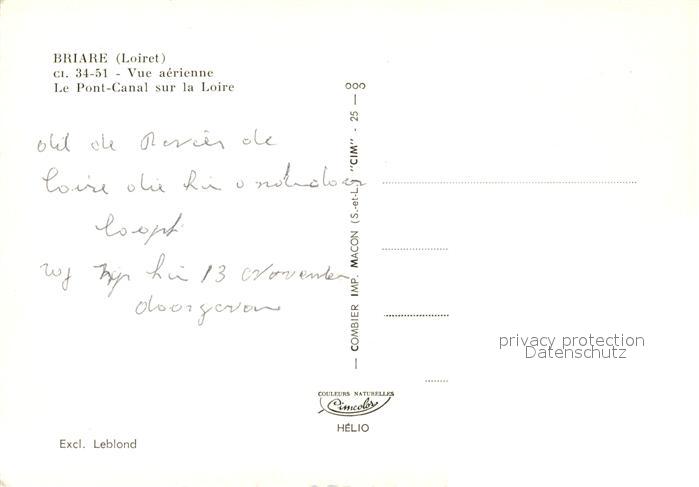 BRIARE (Loiret)
Cl. 34-51 - Vue aérienne
Le Pont-Canal sur la Loire
dit de Rivier de
Loire die hier onderdoor
loopt
wij zijn hier 13 november
doorgevaren
— COMBIER IMP. MACON (S.-et-L.) "CIM" - 25 — 000
privacy protection
Datenschutz
COULEURS NATURELLES
Cimcolor
HÉLIO
Excl. Leblond